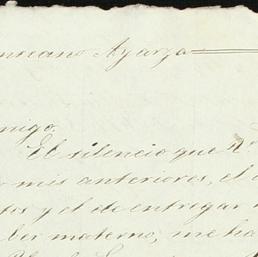 Ayarza
migo.
El silencio que
mis anteriores, el
y el de entregar
ber materno, me ha